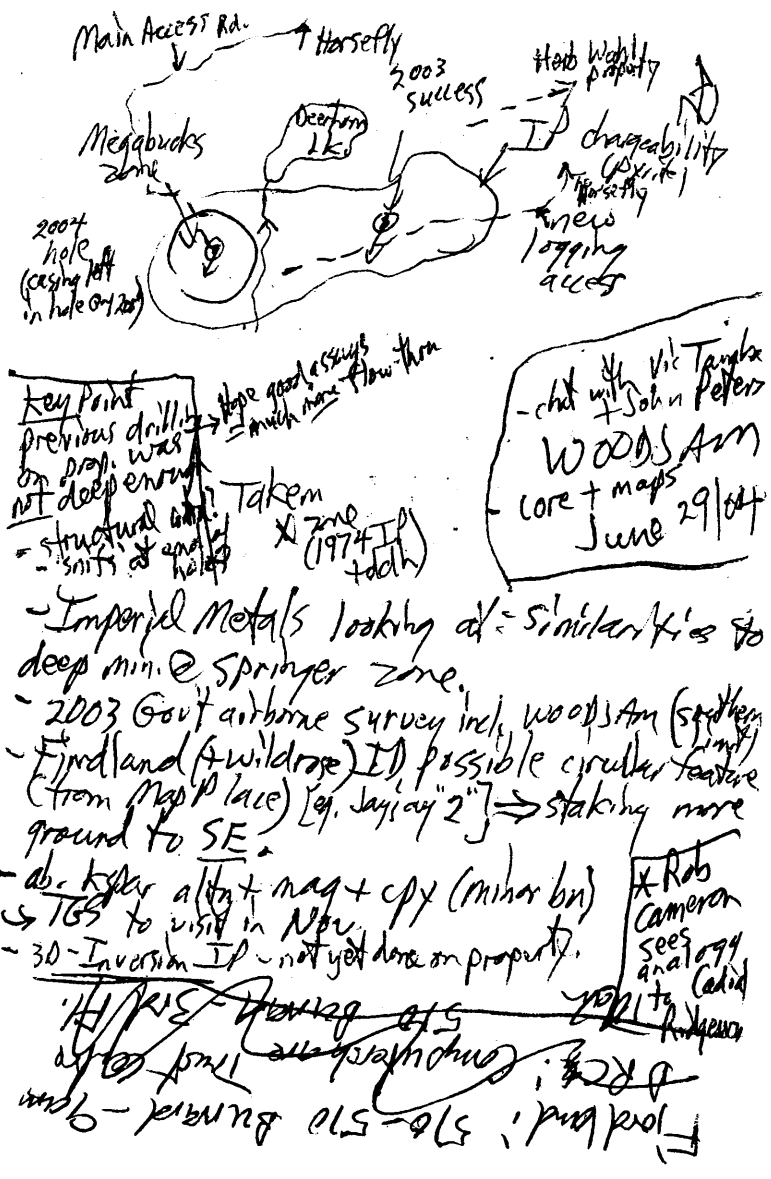 Main Access Rd.
Horsefly
2003
success
Herb Wahl
property
Deerhorn
Lk.
IP
chargeability
(pyrite)
Megabucks
zone
Horsefly
new
logging
access
2004
hole
(casing left
in hole
Key Point
previous drilling
on prop. was
not deep enough
- structural
- at end of
holes
Hope good assays
= much more flow-thru
Takem
X zone
(1974 IP
+ddh)
- chat with Vic Tanaka
+ John Peters
WOODSAM
- core + maps
June 29/04
- Imperial Metals looking at = similarities to
deep min. @ Springer zone.
- 2003 Gov't airborne survey incl. WOODJAM (southern
limit)
- Fjordland (+ wildrose) ID possible circular feature
(from Map Place) [eg. Jayjay "2"] ⇒ staking more
ground to SE.
- ab. kspar altn + mag + cpy (minor bn)
→ TGS to visit in Nov.
- 3D-Inversion IP - not yet done on property.
* Rob
Cameron
sees
analogy
to Cadia
Ridgeway
510 Burrard - 3rd Fl.
Computershare Trust Centre
DRC:
Fjordland: 510-510 Burrard - 9am